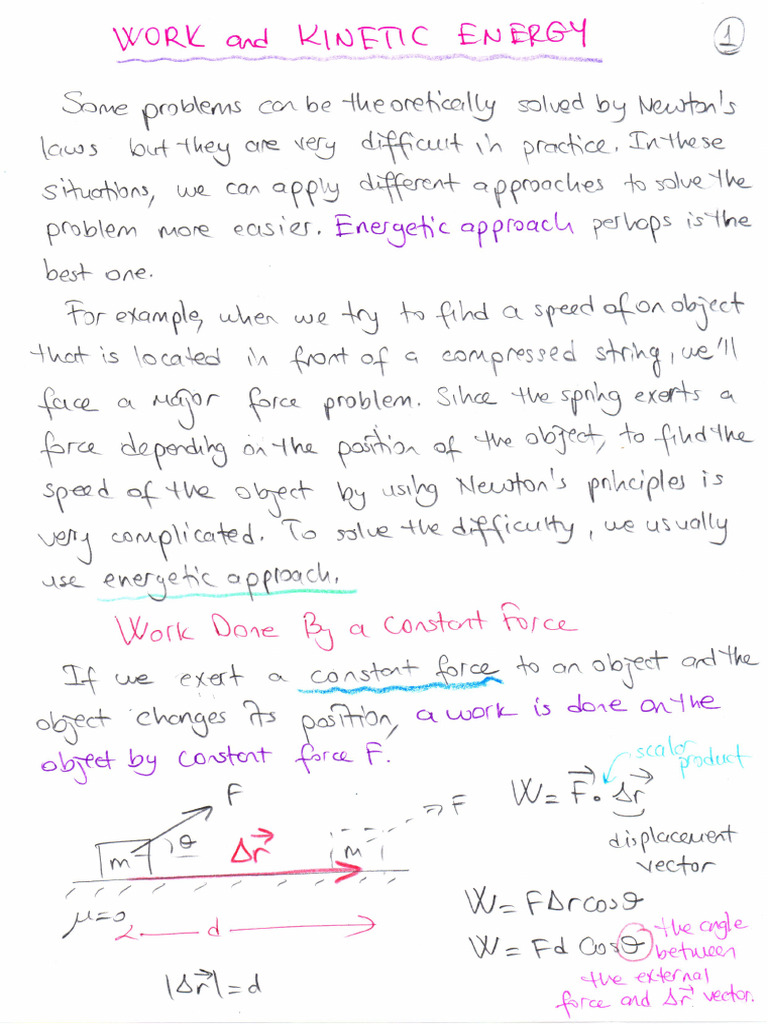 WORK and KINETIC ENERGY
1
Some problems can be theoretically solved by Newton's
laws but they are very difficult in practice. In these
situations, we can apply different approaches to solve the
problem more easier. Energetic approach perhaps is the
best one.
For example, when we try to find a speed of an object
that is located in front of a compressed string, we'll
face a major force problem. Since the spring exerts a
force depending on the position of the object, to find the
speed of the object by using Newton's principles is
very complicated. To solve the difficulty, we usually
use energetic approach.
Work Done By a Constant Force
If we exert a constant force to an object and the
object changes its position, a work is done on the
object by constant force F.
scalar
product
W = F⃗ • Δr⃗
displacement
vector
F
F
m
θ
Δr⃗
m
μ=0
d
|Δr⃗| = d
W = FΔr cosθ
W = Fd Cosθ
the angle
between
the external
force and Δr⃗ vector.